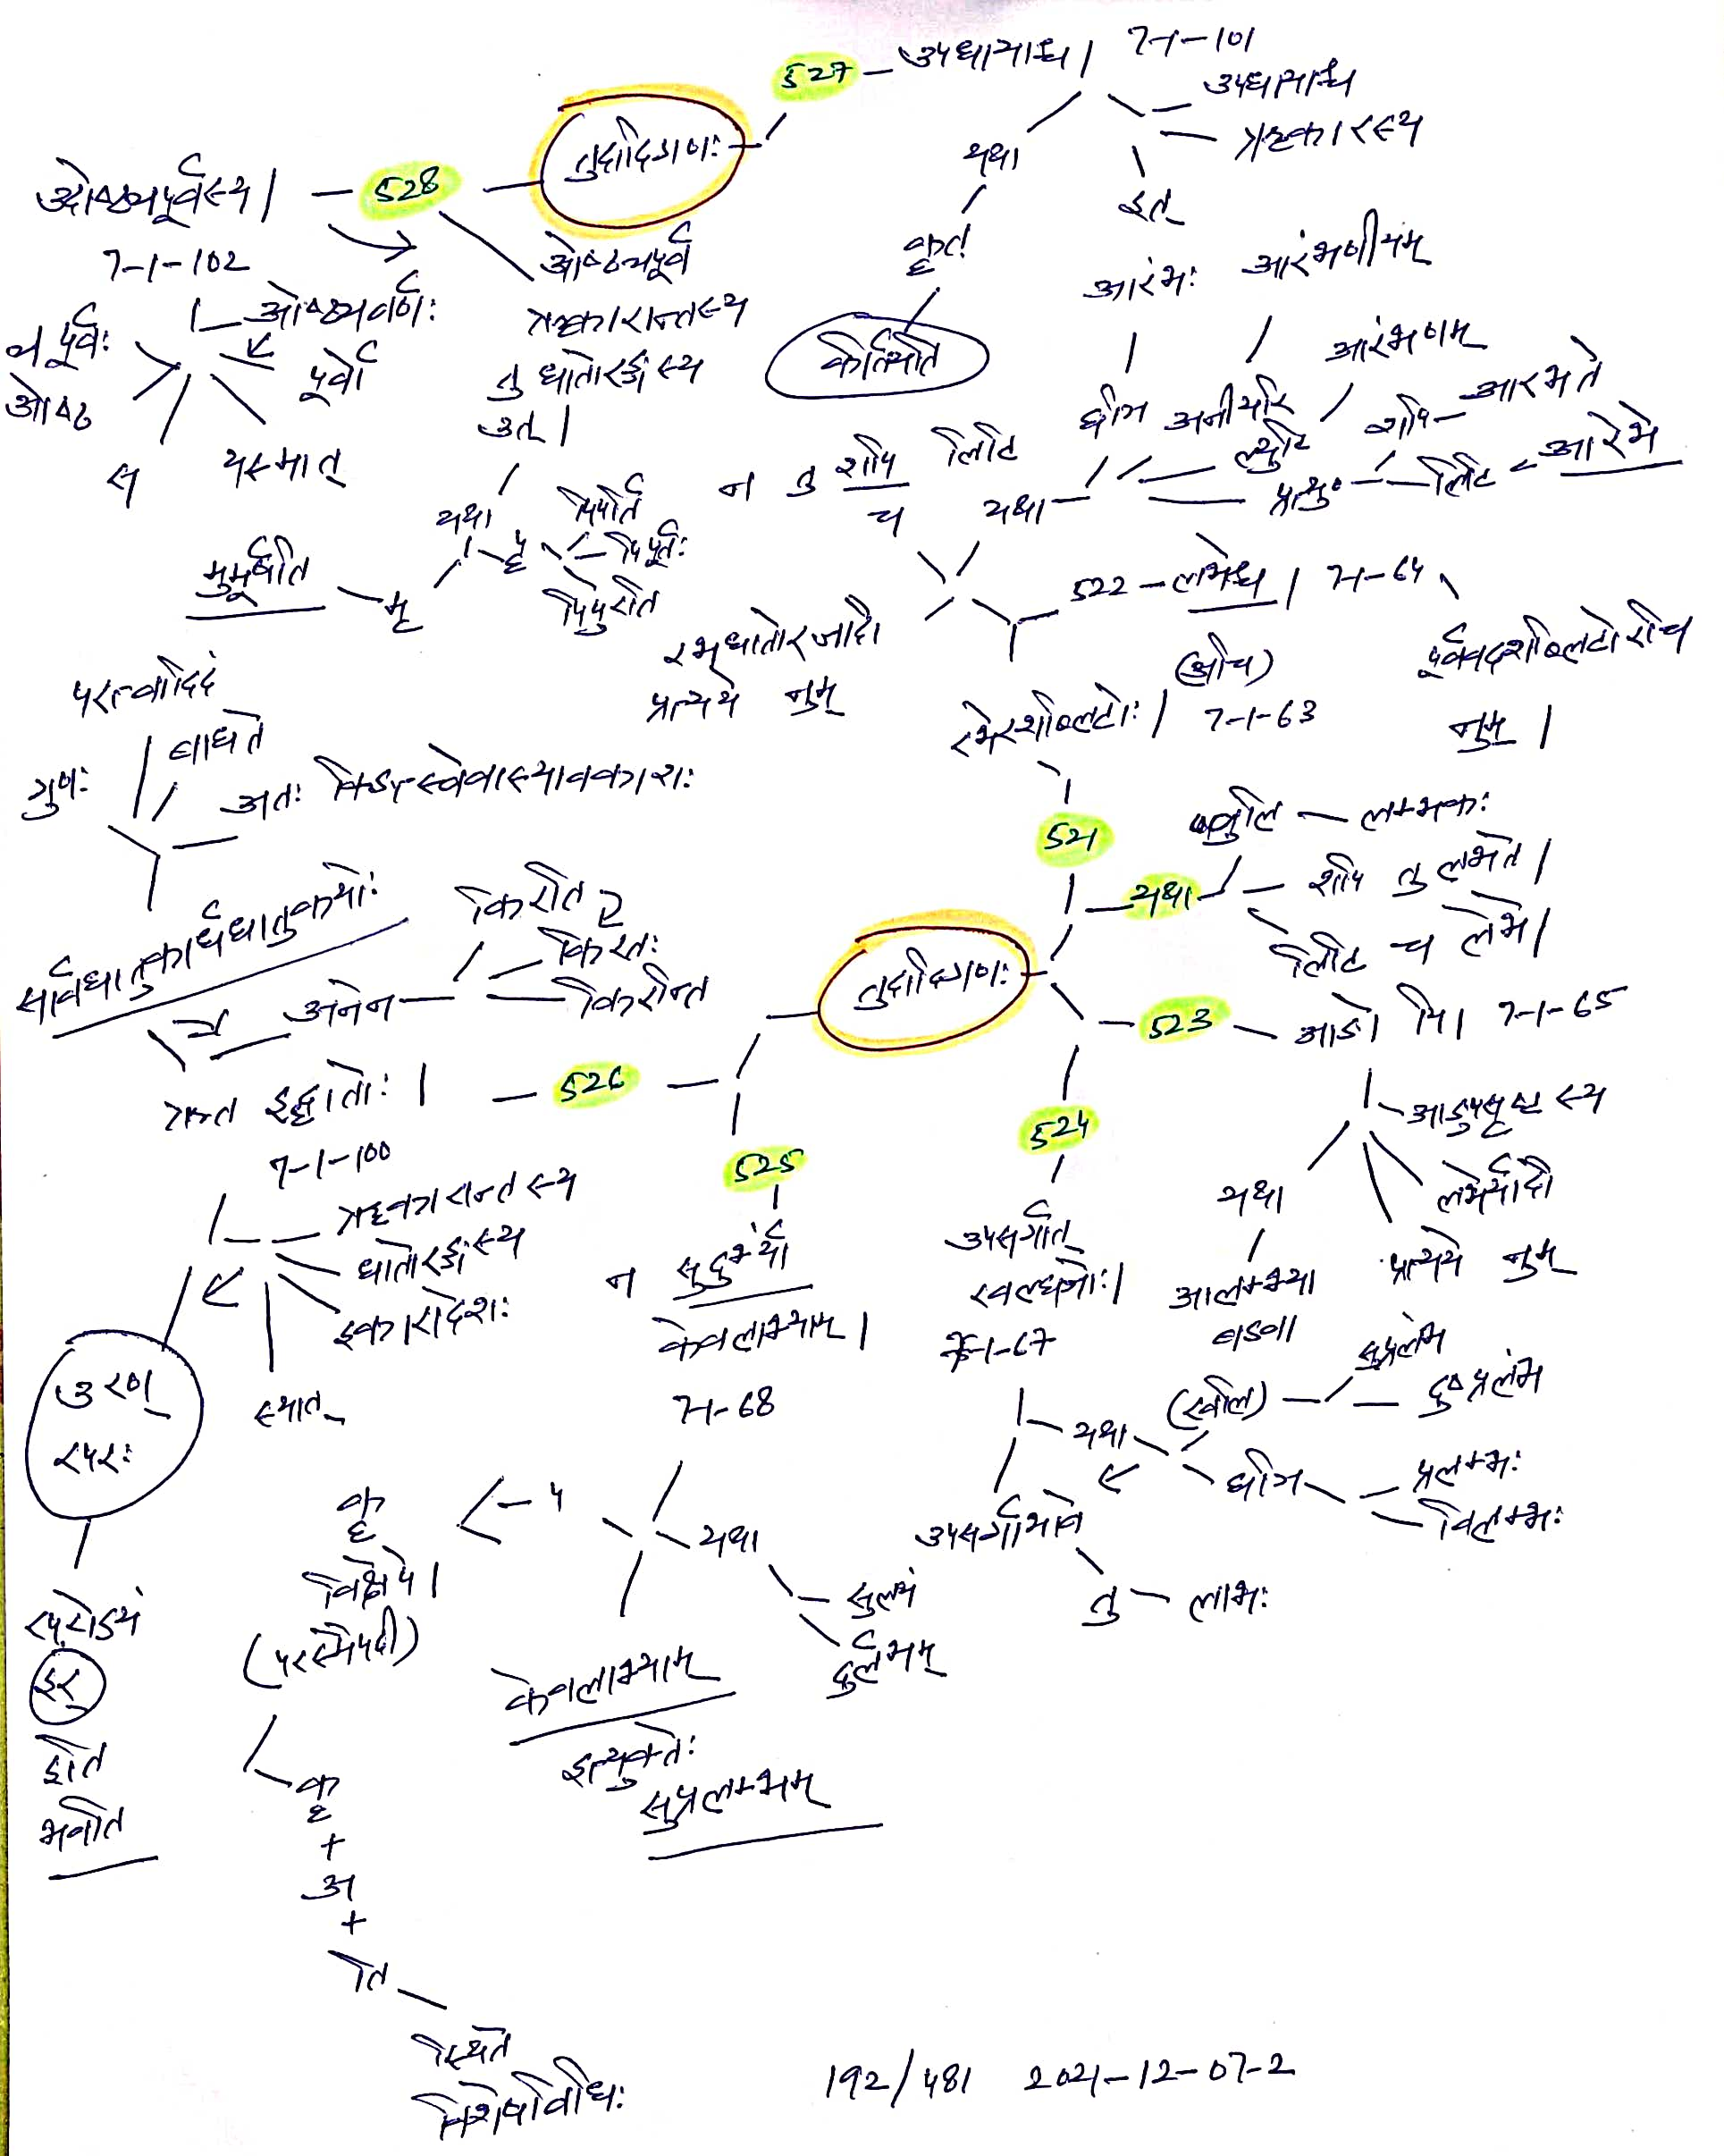 527 - उपधायाश्च । 7-1-101
उपधायाश्च
ॠकारस्य
इत्
यथा
कृत्
कीर्तयति
तुदादिगणः
528
ओष्ठ्यपूर्वस्य ।
7-1-102
ओष्ठ्यवर्णः
पूर्वो
यस्मात्
स
पूर्वः
ओष्ठ
ओष्ठ्यपूर्व
ॠकारान्तस्य
तु धातोरङ्गस्य
उत् ।
यथा
पॄ
पिपर्ति
पिपूर्तः
पिपुरति
मृ
मुमूर्षति
आरंभः
आरंभणीयम्
आरंभणम्
घञि
अनीयरि
ल्युटि
शपि - आरभते
प्रत्यु० - लिटि - आरेभे
यथा
न तु शपि लिटि
च
रभ् धातोरजादौ
प्रत्यये नुम्
522 - लभेश्च । 7-1-64
(अचि)
रभेरशब्लिटोः । 7-1-63
पूर्ववदशब्लिटोरचि
नुम् ।
परत्वादिदं
गुणः
बाधते
अतः
सार्वधातुकार्धधातुकयोः
च
अनेन
किरति
किरतः
किरन्ति
521
यथा
ण्वुलि - लम्भकः
शपि तु लभते ।
लिटि च लेभे ।
तुदादिगणः
523 - आङो यि । 7-1-65
आङुपसृष्टस्य
लभेर्यादौ
प्रत्यये नुम्
यथा
आलम्भ्या
वडवा
526
ॠत इद्धातोः ।
7-1-100
ॠकारान्तस्य
धातोरङ्गस्य
इकारादेशः
स्यात्
उरण्
रपरः
रपरोऽयं
इर्
इति
भवति
525
न सुदुर्भ्यां
केवलाभ्याम् ।
7-1-68
यथा
सुलभं
दुर्लभम्
केवलाभ्याम्
इत्युक्तेः
सुप्रलम्भम्
524
उपसर्गात्
खल्घञोः ।
7-1-67
यथा
(खलि)
सुप्रलंभ
दुष्प्रलंभ
घञि
प्रलम्भः
विलम्भः
उपसर्गाभावे
तु - लाभः
प
कॄ
विक्षेपे ।
(परस्मैपदी)
कॄ
+
अ
+
ति
स्थिते
विशेषविधिः
192/481 2021-12-07-2